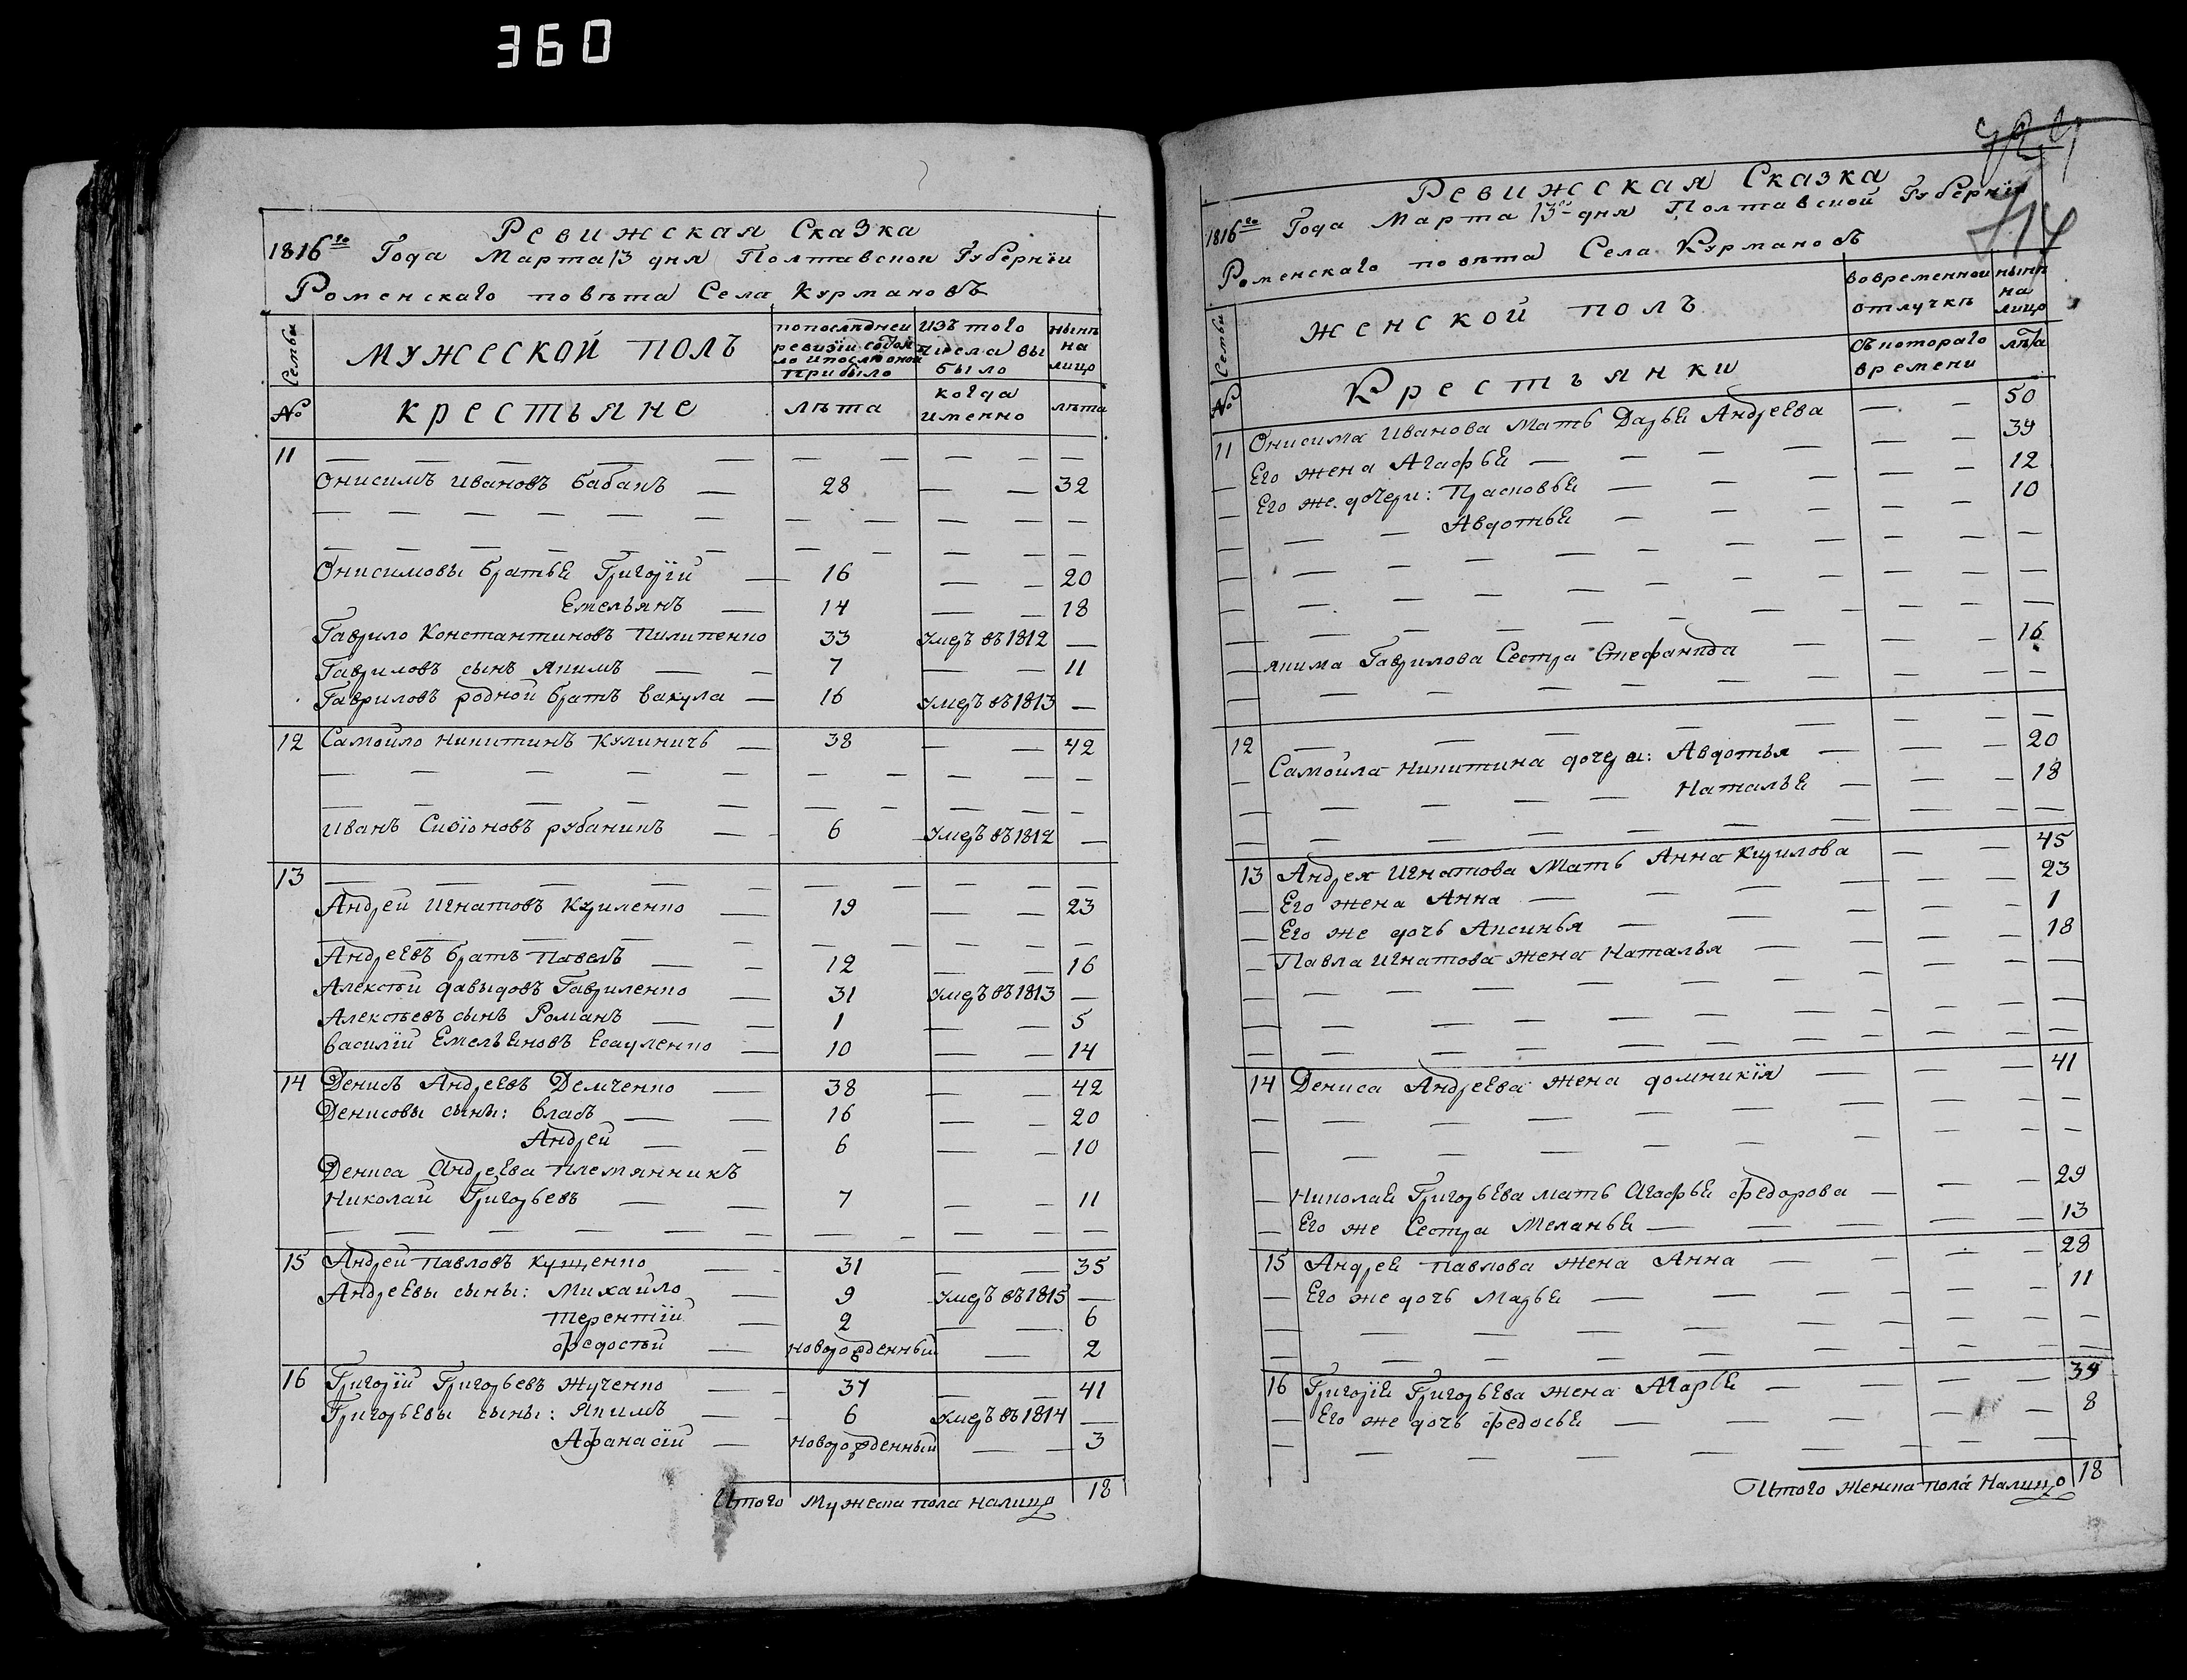 360
Ревижская Сказка
1816го Года Марта 13 дня Полтавской Губернїи
Роменскаго повѣта Села Курмановъ
Семьи
мужеской полъ
попослѣдней ревизїи состояло ипослѣ оной прибыло
изъ того числа выбыло
нынѣ на лицо
№
крестьяне
лѣта
когда именно
лѣта
11 — — — — — — — —
Онисимъ Ивановъ Бабакъ — 28 — — 32
— — — — — — — —
— — — — — — — —
Онисимовы братья Григорїй — 16 — — 20
Емельянъ — 14 — — 18
Гаврило Константиновъ Пилипенко 33 умеръ въ 1812 —
Гавриловъ сынъ Якимъ — — 7 — — 11
Гавриловъ родной братъ Вакула — 16 умеръ въ 1813 —
12 Самойло Никитинъ Кулиничъ — 38 — — 42
— — — — — — — —
— — — — — — — —
Иванъ Сизїоновъ рубаникъ — — 6 умеръ въ 1812 —
13 — — — — — — — —
Андрей Игнатовъ Кириленко — 19 — — 23
— — — — — — — —
Андреевъ братъ Павелъ — — 12 — — 16
Алексѣй Давыдовъ Гавриленко — 31 умеръ въ 1813 —
Алексѣевъ сынъ Романъ — — 1 — — 5
Василїй Емельяновъ Есауленко — 10 — — 14
14 Денисъ Андреевъ Демченко — 38 — — 42
Денисовы сыны: Власъ — — 16 — — 20
Андрей — — 6 — — 10
Дениса Андреева племянникъ
Николай Григорьевъ — — 7 — — 11
— — — — — — — —
15 Андрей Павловъ Кущенко — — 31 — — 35
Андреевы сыны: Михайло — 9 умеръ въ 1815 —
Терентїй — 2 — — 6
Федосѣй — новорожденный — 2
16 Григорїй Григорьевъ Жученко — — 37 — — 41
Григорьевы сыны: Якимъ — — 6 умеръ въ 1814 —
Афанасїй — новорожденный — — 3
Итого Мужеска пола налицо 18
Ревижская Сказка
1816го Года Марта 13го дня Полтавской Губернїи
714
Роменскаго повѣта Села Курмановъ
Семьи
женской полъ
вовременной отлучкѣ
нынѣ на лицо
№
Крестьянки
съкотораго времени
лѣта
11 Онисима Иванова Мать Дарья Андреева — — 50
— Его жена Агафья — — — — — 39
— Его же дочери: Прасковья — — — — — 12
— — — Авдотья — — — — 10
— — — — — — — —
— — — — — — — —
— — — — — — — —
— Якима Гаврилова Сестра Стефанида — — — 16
— — — — — — — —
12 — — — — — — — —
— Самойла Никитина дочери: Авдотья — — — 20
— — — — — Наталья — — — 18
— — — — — — — —
13 Андрея Игнатова Мать Анна Кирилова — — 45
— Его жена Анна — — — — — 23
— Его же дочь Аксинья — — — — — 1
— Павла Игнатова жена Наталья — — — — 18
— — — — — — — —
— — — — — — — —
— — — — — — — —
14 Дениса Андреева жена Домникїя — — — — 41
— — — — — — — —
— — — — — — — —
— Николая Григорьева мать Агафья Федорова — — — 29
— Его же Сестра Меланья — — — — — 13
15 Андрея Павлова жена Анна — — — — 28
— Его же дочь Марья — — — — — 11
— — — — — — — —
— — — — — — — —
16 Григорїя Григорьева жена Марья — — — — 39
— Его же дочь Федосья — — — — — 8
— — — — — — — —
Итого Женска пола Налицо 18